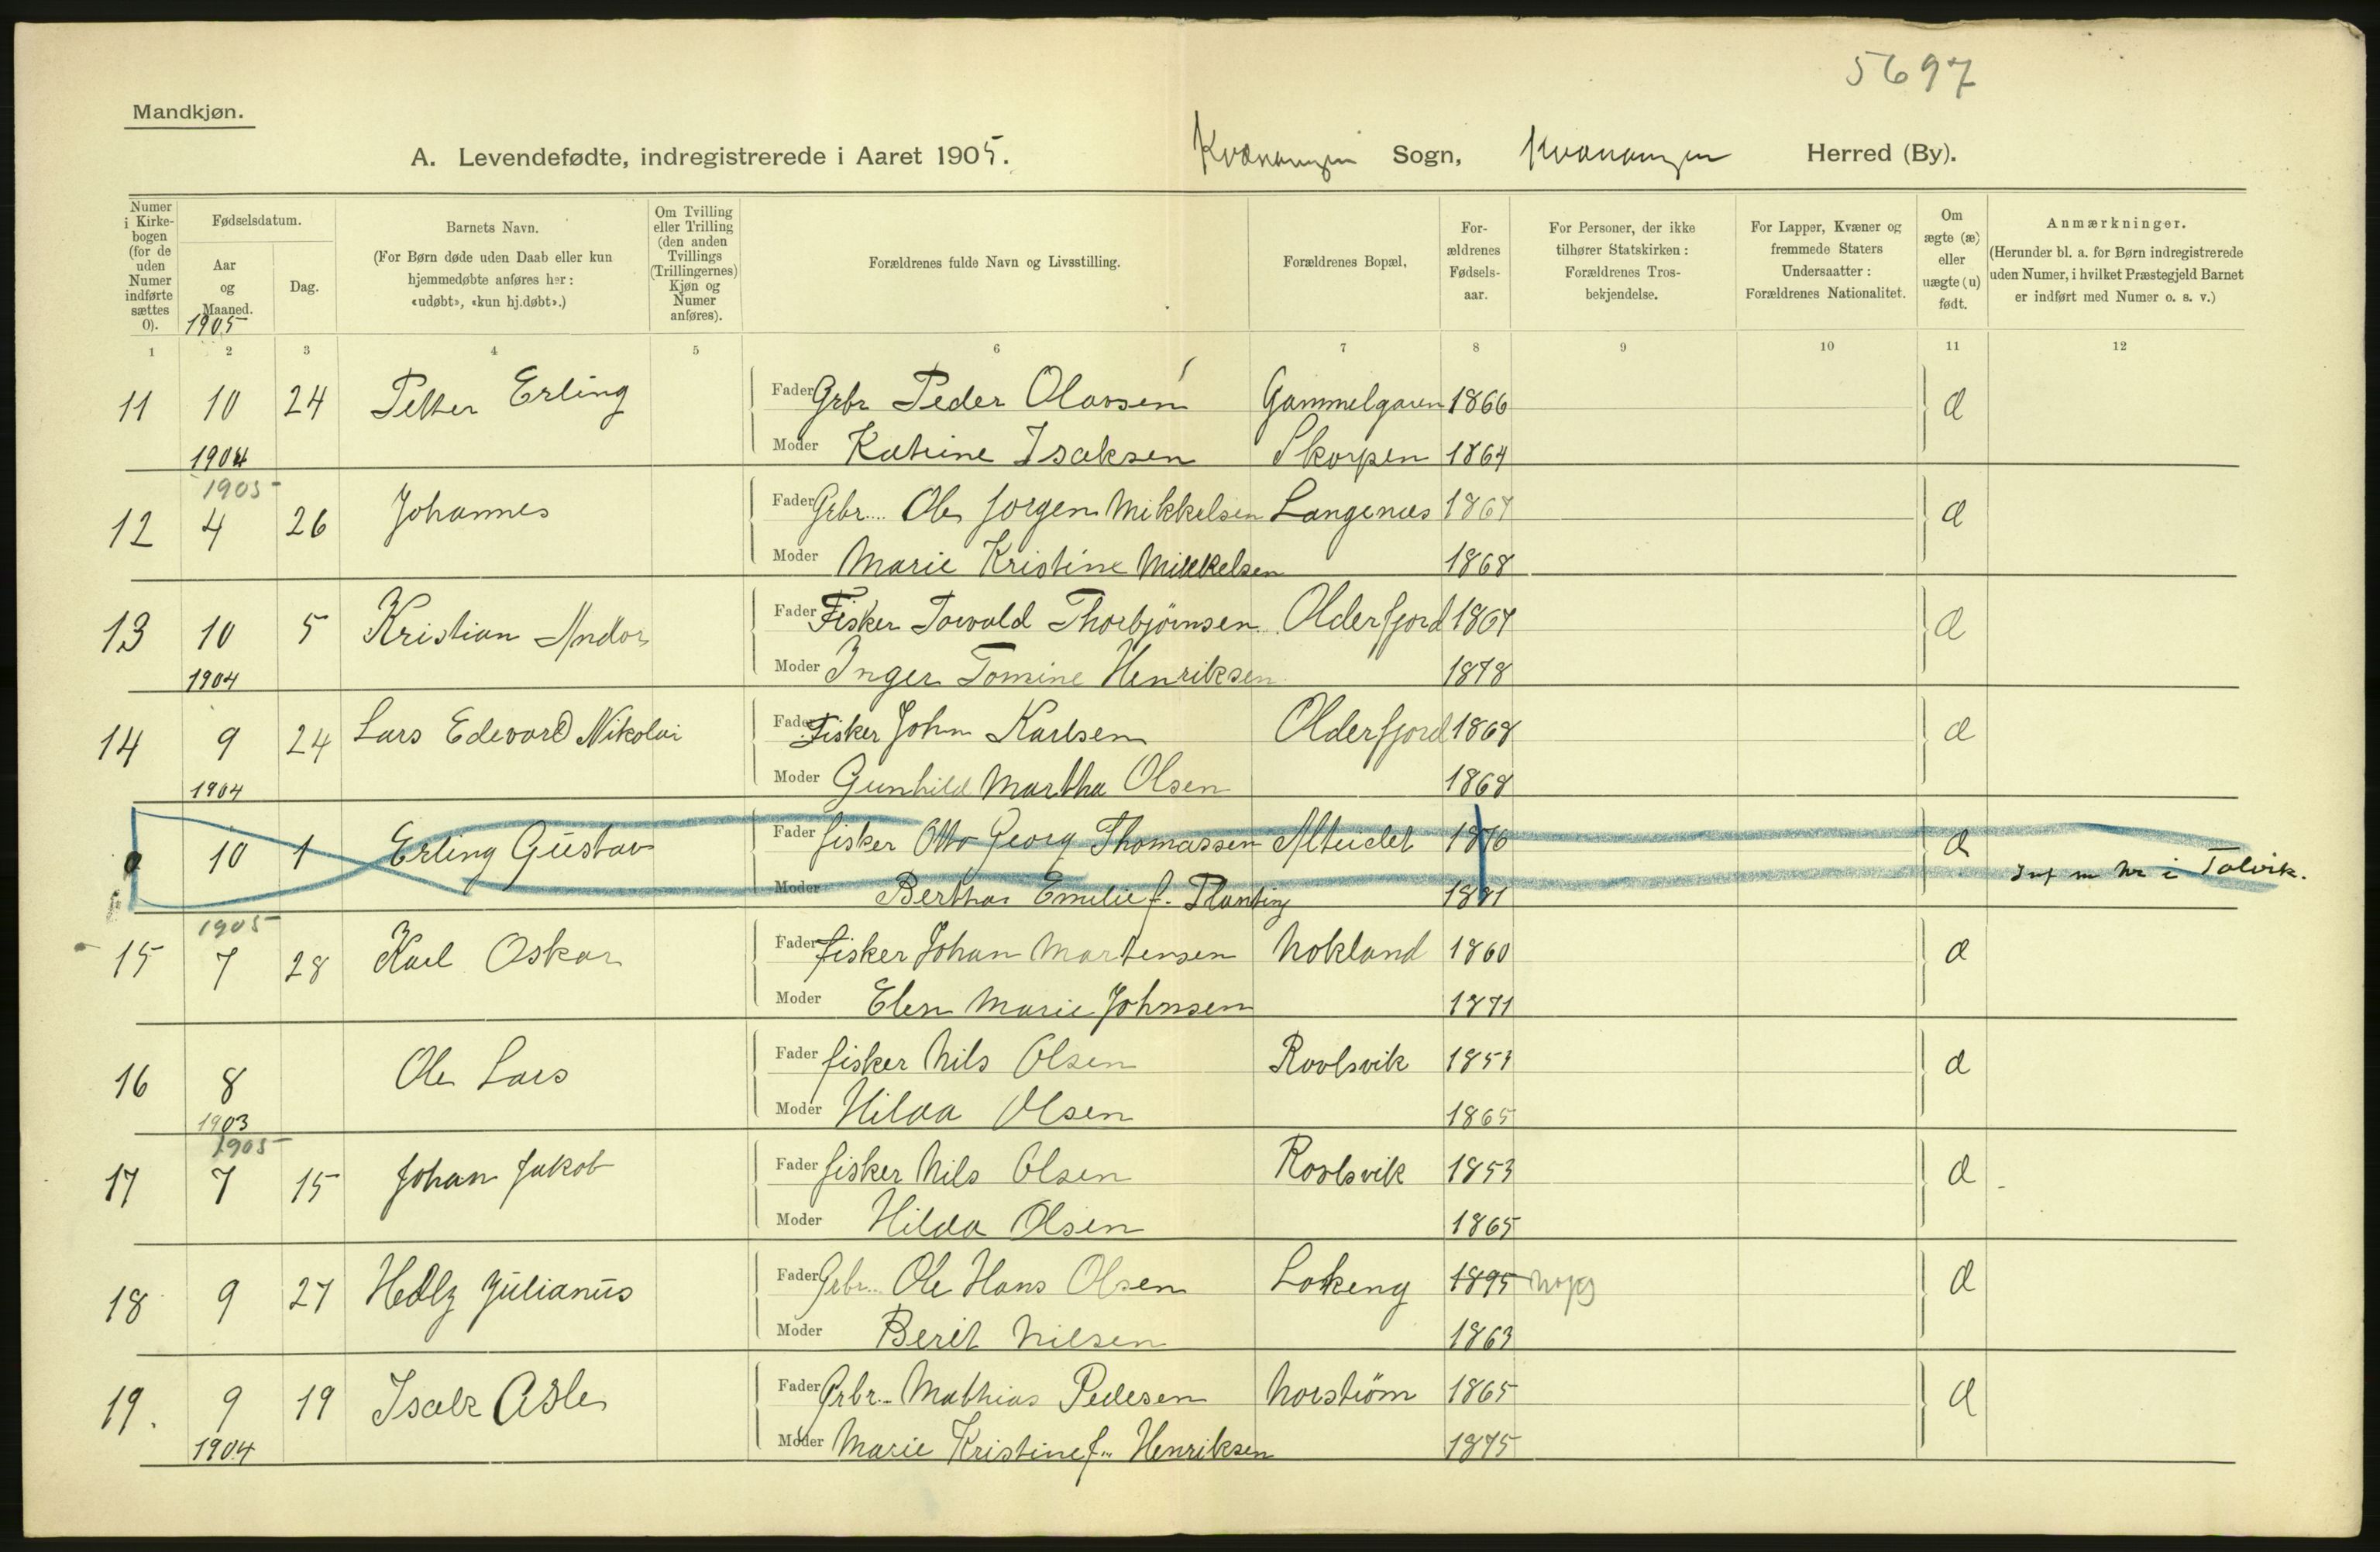 5697
Mandkjøn.
A. Levendefødte, indregistrerede i Aaret 1905.
Kvænangen Sogn, Kvænangen Herred (By).
Numer i Kirkebogen (for de uden Numer indførte sættes 0).
Fødselsdatum.
Aar og Maaned.
1905
Dag.
Barnets Navn.
(For Børn døde uden Daab eller kun hjemmedøbte anføres her: «udøbt», «kun hj.døbt».)
Om Tvilling eller Trilling (den anden Tvillings (Trillingernes) Kjøn og Numer anføres).
Forældrenes fulde Navn og Livsstilling.
Forældrenes Bopæl,
Forældrenes Fødselsaar.
For Personer, der ikke tilhører Statskirken: Forældrenes Trosbekjendelse.
For Lapper, Kvæner og fremmede Staters Undersaatter: Forældrenes Nationalitet.
Om ægte (æ) eller uægte (u) født.
Anmærkninger.
(Herunder bl. a. for Børn indregistrerede uden Numer, i hvilket Præstegjeld Barnet er indført med Numer o. s. v.)
1 2 3 4 5 6 7 8 9 10 11 12
11 10 24 Petter Erling Fader Grbr Peder Olavsen Gammelgaren 1866 æ
1904 Moder Katrine Isaksen Skorpen 1864
1905
12 4 26 Johannes Fader Grbr. Ole Jørgen Mikkelsen Langenæs 1867 æ
Moder Marie Kristine Mikkelsen 1868
13 10 5 Kristian Andor Fader Fisker Torvald Thorbjørnsen Olderfjord 1867 æ
1904 Moder Inger Tomine Henriksen 1878
14 9 24 Lars Edevard Nikolai Fader Fisker John Karlsen Olderfjord 1868 æ
1904 Moder Gunhild Martha Olsen 1868
0 10 1 Erling Gustav Fader fisker Otto Georg Thomassen Alteidet 1876 æ
Moder Bertha Emilie f. Planting 1881 Inf m Nr i Talvik.
1905
15 7 28 Karl Oskar Fader fisker Johan Martensen Nokland 1860 æ
Moder Elen Marie Johnsen 1871
16 8 Ole Lars Fader fisker Nils Olsen Rovlsvik 1853 æ
1903 Moder Hilda Olsen 1865
1905
17 7 15 Johan Jakob Fader fisker Nils Olsen Rovlsvik 1853 æ
Moder Hilda Olsen 1865
18 9 27 Hedly Julianus Fader Grbr. Ole Hans Olsen Løkeng 1895 æ
Moder Berit Nilsen 1863
19. 9 19 Isak Asle Fader Grbr. Mathias Pedesen Norstrøm 1865 æ
1904 Moder Marie Kristine f. Henriksen 1875